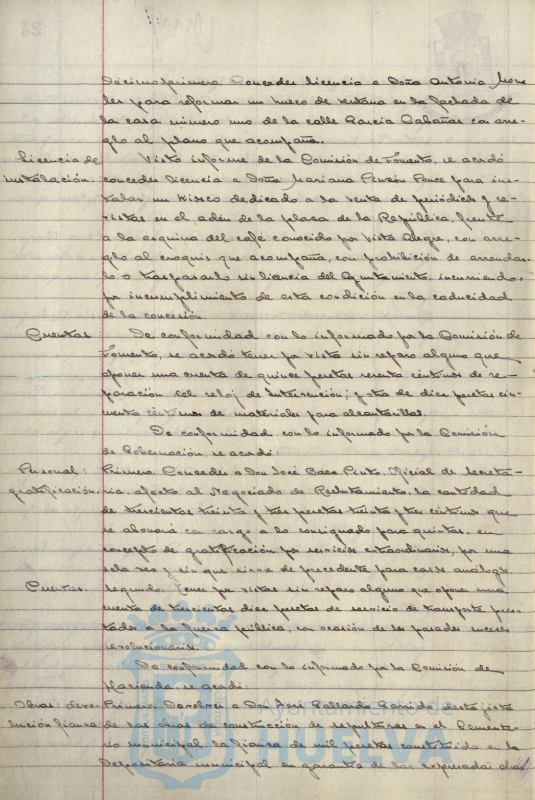 Décimoprimero. Conceder licencia a Doña Antonia Mora-
les para reformar un hueco de ventana en la fachada de
la casa número uno de la calle García Cabañas con arre-
glo al plano que acompaña.
Licencia de
instalación.
Visto informe de la Comisión de Fomento, se acordó
conceder licencia a Doña Mariana Pinzón Ponce para ins-
talar un kiosco dedicado a la venta de periódicos y re-
vistas en el andén de la plaza de la República, frente
a la esquina del café conocido por Vista Alegre, con arre-
glo al croquis que acompaña, con prohibición de arrendar-
lo o traspasarlo sin licencia del Ayuntamiento, incurriendo
por incumplimiento de esta condición en la caducidad
de la concesión.
Cuentas
De conformidad con lo informado por la Comisión de
Fomento, se acordó tener por vista sin reparo alguno que
oponer una cuenta de quince pesetas sesenta céntimos de re-
paración del reloj de Intervención; y otra de diez pesetas cin-
cuenta céntimos de materiales para alcantarillas.
De conformidad con lo informado por la Comisión
de Gobernación, se acordó:
Personal:
gratificación.
Primero. Conceder a Don José Baez Pinto, Oficial de Secreta-
ría, afecto al Negociado de Reclutamiento, la cantidad
de trescientas treinta y tres pesetas treinta y tres céntimos que
se abonará con cargo a lo consignado para quintas, en
concepto de gratificación por servicios extraordinarios, por una
sola vez y sin que sirva de precedente para casos análogos.
Cuentas.
Segundo. Tener por vistas sin reparo alguno que oponer una
cuenta de trescientas diez pesetas de servicio de transporte pres-
tados a la fuerza pública, con ocasión de los pasados sucesos
revolucionarios.
De conformidad con lo informado por la Comisión de
Hacienda, se acordó:
Obras: devo-
lución fianza
Primero. Devolver a Don José Gallardo Garrido, destajista
de las obras de construcción de sepulturas en el Cemente-
rio municipal, la fianza de mil pesetas constituida en la
Depositaría municipal en garantía de las expresadas obras
Ayuntamiento de
HUELVA